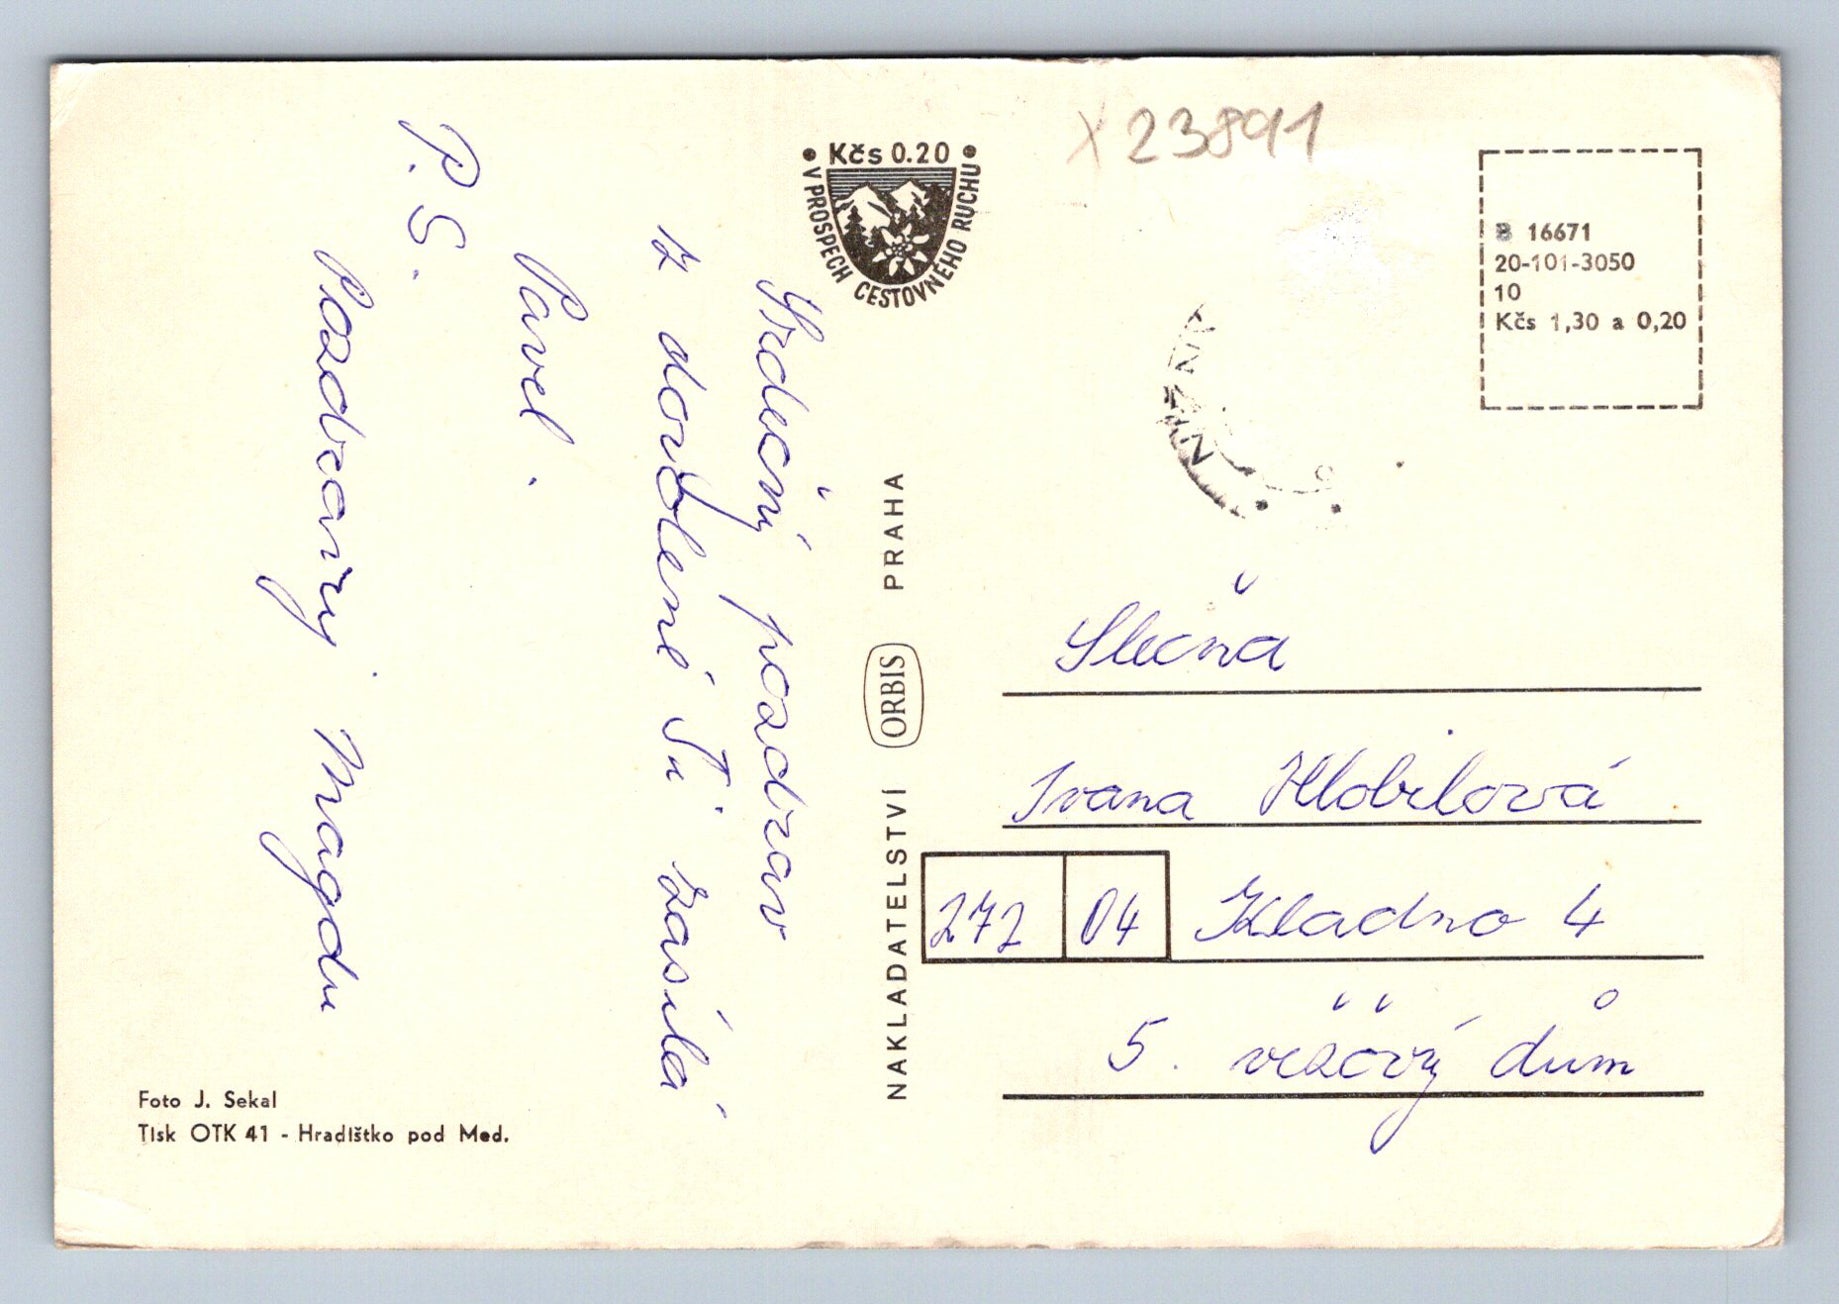 Srdečný pozdrav
z dovolené Ti zasílá
Pavel.
P.S.
Pozdravuj Magdu
Foto J. Sekal
Tisk OTK 41 - Hradištko pod Med.
Kčs 0.20
V PROSPECH CESTOVNÉHO RUCHU
NAKLADATELSTVÍ ORBIS PRAHA
X 23891
B 16671
20-101-3050
10
Kčs 1,30 a 0,20
Slečna
Ivana Hlobilová
272 04 Kladno 4
5. věžový dům